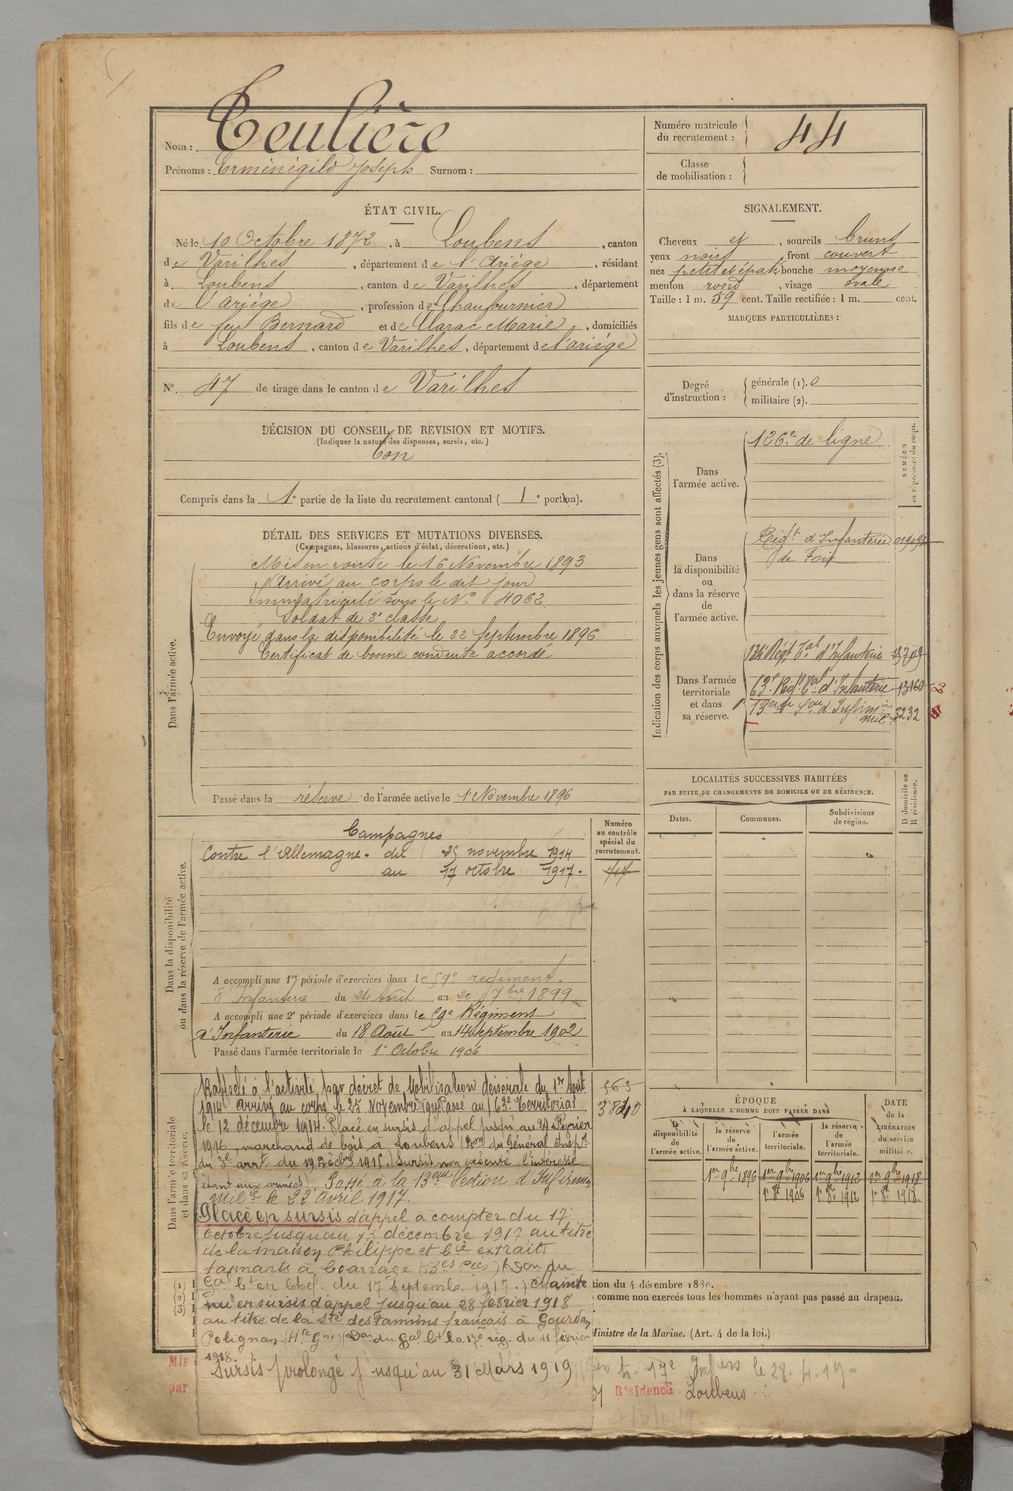 Nom : Teulière
Prénoms : Erménégild Joseph Surnom :
Numéro matricule du recrutement : 44
Classe de mobilisation :
ÉTAT CIVIL.
Né le 10 Octobre 1872, à Loubens, canton
de Varilhes, département de l'Ariège, résidant
à Loubens, canton de Varilhes, département
de l'Ariège, profession de Chaufournier
fils de feu Bernard et de Clarac Marie, domiciliés
à Loubens, canton de Varilhes, département de l'ariège
N° 47 de tirage dans le canton de Varilhes
DÉCISION DU CONSEIL DE REVISION ET MOTIFS.
(Indiquer la nature des dispenses, sursis, etc.)
Bon
Compris dans la 1e partie de la liste du recrutement cantonal ( 1e portion).
SIGNALEMENT.
Cheveux et, sourcils bruns
yeux noirs, front couvert
nez petit et épaté bouche moyenne
menton rond, visage ovale
Taille : 1 m. 59 cent. Taille rectifiée : 1 m. cent.
MARQUES PARTICULIÈRES :
Degré d'instruction : générale (1). 0
militaire (2).
DÉTAIL DES SERVICES ET MUTATIONS DIVERSES.
(Campagnes, blessures, actions d'éclat, décorations, etc.)
Dans l'armée active.
Mis en route le 16 Novembre 1893
Arrivé au corps le dit jour
Immatriculé sous le N° 4062
Soldat de 2e classe
Envoyé dans la disponibilité le 22 Septembre 1896
Certificat de bonne conduite accordé
Passé dans la réserve de l'armée active le 1 Novembre 1896
Indication des corps auxquels les jeunes gens sont affectés (3).
NUMÉRO au répertoire du corps.
Dans l'armée active.
126e de ligne
Dans la disponibilité ou dans la réserve de l'armée active.
Régt d'Infanterie
de Foix
Dans l'armée territoriale et dans sa réserve.
Régt Tal d'Infanterie
63e Régt Tal d'Infanterie 13160
13e 3232
Dans la disponibilité ou dans la réserve de l'armée active.
Campagnes
Contre l'Allemagne. du 25 novembre 1914
au 17 octobre 1917.
Numéro au contrôle spécial du recrutement.
A accompli une 1re période d'exercices dans le 59e régiment
d'Infanterie du 24 Août au 20 7bre 1899
A accompli une 2e période d'exercices dans le 59e Régiment
d'Infanterie du 18 Août au 14 Septembre 1902
Passé dans l'armée territoriale le 1er Octobre 1906
LOCALITÉS SUCCESSIVES HABITÉES
PAR SUITE DE CHANGEMENTS DE DOMICILE OU DE RÉSIDENCE.
Dates. Communes. Subdivisions de région. D domicile ou R résidence.
Dans l'armée territoriale et dans sa réserve.
Rappelé à l'activité par décret de Mobilisation Générale du 1er Août
1914 Arrivé au corps le 25 Novembre 1914 Passé au 63e Territorial
le 12 décembre 1914. Placé en sursis d'appel jusqu'au 29 Février
1916 marchand de bois à Loubens
Sursis non exécuté l'intéressé
étant aux armées. Passé à la 13eme Section d'Infirmiers
Milres le 22 avril 1917.
Placé en sursis d'appel a compter du 17
Octobre jusqu'au 13 décembre 1917 au titre
de la maison Philippe et Cie extraits
tannants à
en Chef. du 17 Septembre 1917.) Mainte
nu en sursis d'appel jusqu'au 28 février 1918
au titre de la Sté des Tannins français à Gourdan
Polignan du 11 février
1918.
Sursis prolongé jusqu'au 31 Mars 1919
563
ÉPOQUE
À LAQUELLE L'HOMME DOIT PASSER DANS
la disponibilité de l'armée active. la réserve de l'armée active. l'armée territoriale. la réserve de l'armée territoriale.
DATE de la LIBÉRATION du service militaire.
1er 9bre 1896 1er 9bre 1906 1er 9bre 1912 1er 9bre 1918
1er 8bre 1906 1er 8bre 1912 1er 8bre 1918
(1)
(2)
(3)
tion du 4 décembre 1889.
comme non exercés tous les hommes n'ayant pas passé au drapeau.
Ministre de la Marine. (Art. 4 de la loi.)
Mis
par
17e le 28-4-19
Résidence Loubens